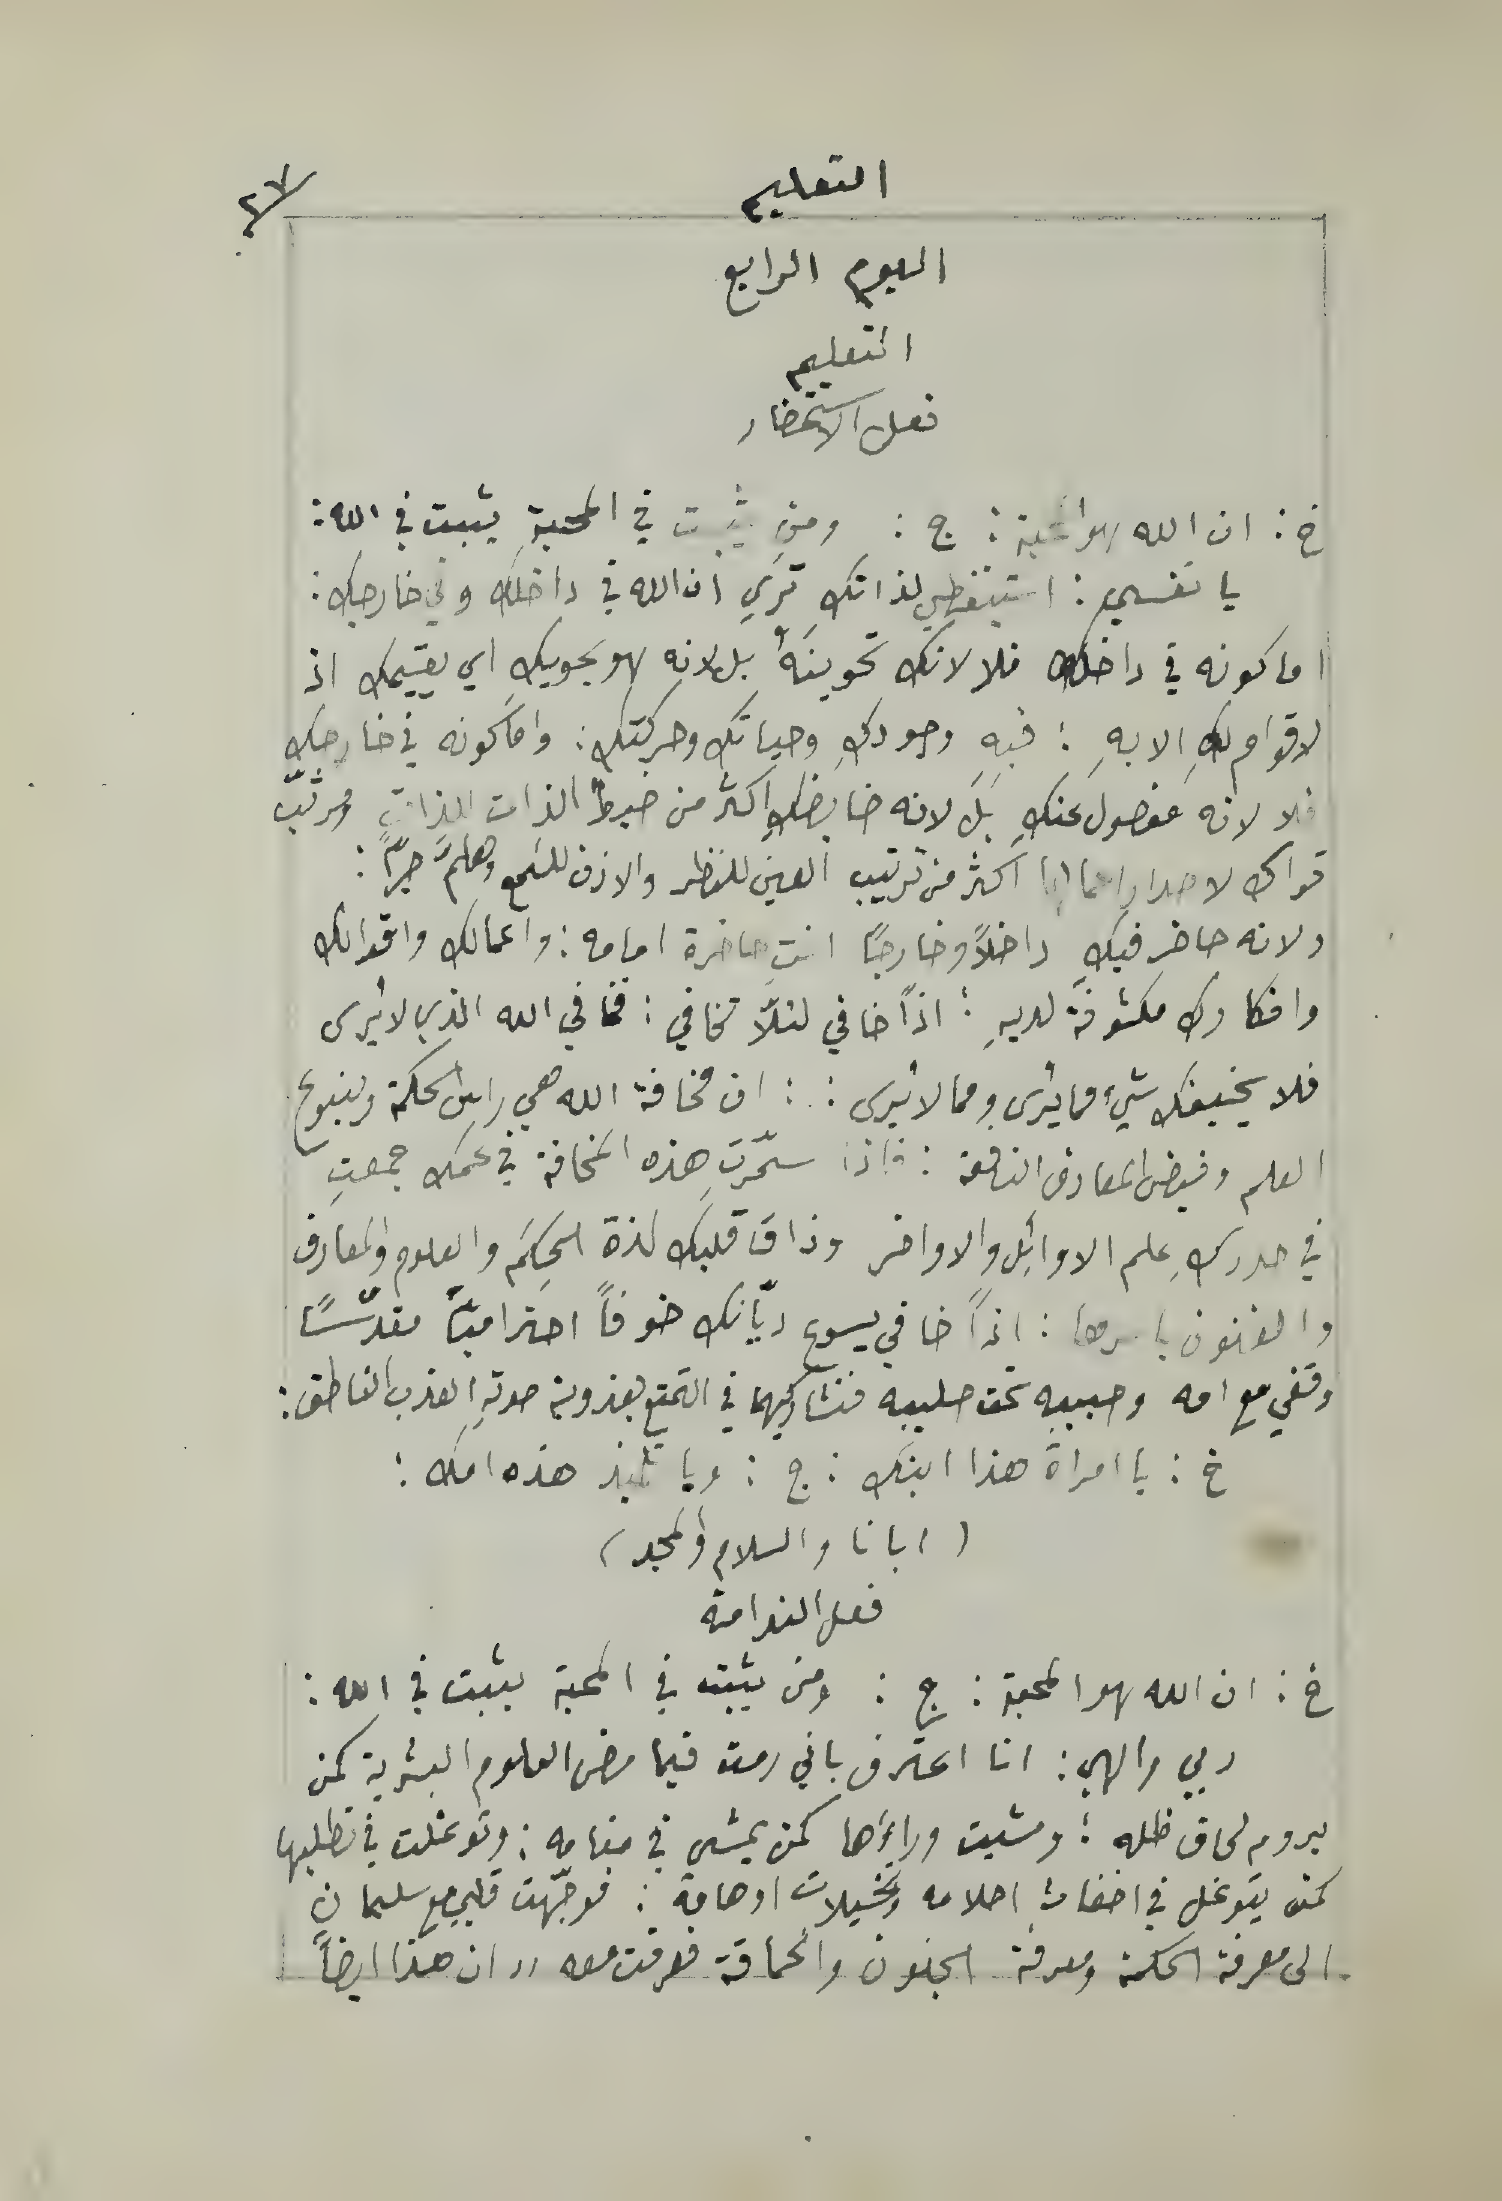 التعليم
٢٧
اليوم الرابع
التعليم
فعل الاستحضار
خ : ان الله هو المحبة : ج : ومن يثبت في المحبةِ يثبت في الله :
يا نفسي : استيقظي لذاتكِ تري ان الله في داخلك وفي خارجك :
اما كونه في داخلك فلا لانك تحوينهُ بل لانه هو يحويكِ اي يقيمك اذ
لا قوام لكِ الا بهِ : فبهِ وجودكِ وحياتك وحركتك : واما كونه في خارجك
فلا لانه مفصول عنكِ بل لانه ضابطكِ اكثر من ضبط الذات للذات ومرتّب
قواك لاصدار اعمالها اكثر من ترتيب العين للنظر والاذن للسمع وهلمّ جرّاً :
ولانه حاضر فيكِ داخلاً وخارجًا انتِ حاضرة امامه : واعمالك واقوالك
وافكارك مكشوفة لديهِ : اذاً خافي لئلّا تخافي : خافي الله الذي لا يُرى
فلا يخيفك شيء مما يُرى ومما لا يُرى : : ان مخافة الله هي راس الحكمة وينبوع
العلم وفيض المعارف النافعة : فاذا سمّرتِ هذه المخافة في جمعتِ
في صدركِ علم الاوائل والاواخر وذاق قلبك لذة الحِكَم والعلوم والمعارف
والفنون باسرها : اذاً خافي يسوع ديّانك خوفاً احتراميّاً مقدّسًا
وقفي مع امه وحبيبه تحت صليبه فتشاركيهما في التمتع بعذوبة صوتهِ العذب الناطق :
خ : يا امراة هذا ابنك : ج : ويا تلميذ هذه امك :
( ابانا والسلام والمجد )
فعل الندامة
خ : ان الله هو المحبة : ج : ومن يثبت في المحبة يثبت في الله :
ربي والهي : انا اعترف باني رمت فيما مضى العلوم البشرية كمن
يروم لحاق ظله : ومشيت وراءها كمن يمشي في منامه : وتوغلت في تطلبها
كمن يتوغل في اضغاث احلامه وتخيلات اوهامه : فوجّهت قلبي مع سليمان
الى معرفة الحكمة ومعرفة الجنون والحماقة فعرفت معه ,, ان هذا ايضاً